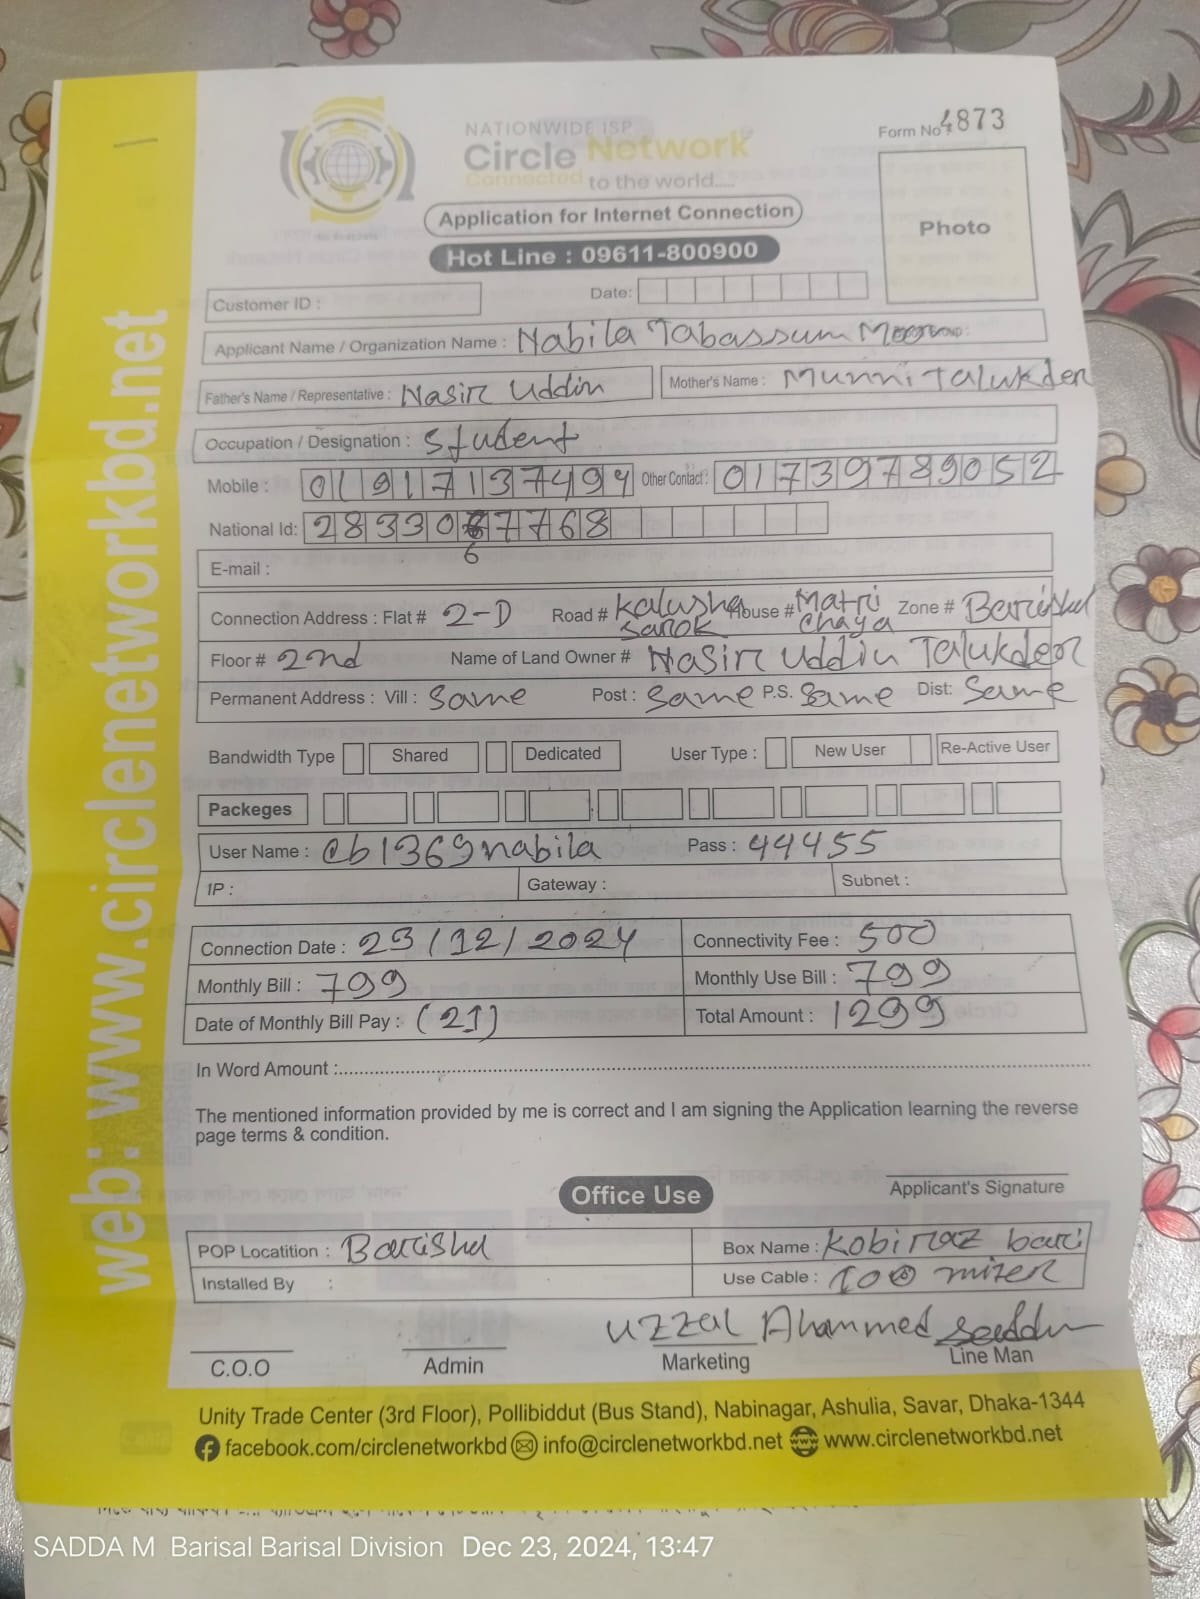 Form No 4873
NATIONWIDE ISP
Circle Network
Connected to the world.....
Application for Internet Connection
Hot Line : 09611-800900
Photo
Customer ID :
Date:
Applicant Name / Organization Name : Nabila Tabassum
Father's Name / Representative : Nasir Uddin
Mother's Name : Munni Talukder
Occupation / Designation : Student
Mobile : 01917137494 Other Contact : 01739789052
National Id: 2833067768
6
E-mail :
Connection Address : Flat # 2-D Road # Kalusha Sarok House # Matri Chaya Zone # Barishal
Floor # 2nd Name of Land Owner # Nasir Uddin Talukder
Permanent Address : Vill : Same Post : Same P.S. Same Dist: Same
Bandwidth Type Shared Dedicated User Type : New User Re-Active User
Packeges
User Name : cb1369nabila Pass : 44455
IP : Gateway : Subnet :
Connection Date : 23/12/2024 Connectivity Fee : 500
Monthly Bill : 799 Monthly Use Bill : 799
Date of Monthly Bill Pay : (21) Total Amount : 1299
In Word Amount :
The mentioned information provided by me is correct and I am signing the Application learning the reverse
page terms & condition.
Applicant's Signature
Office Use
POP Locatition : Barishal Box Name : Kobiraz bari
Installed By : Use Cable : 100 miter
Uzzal Ahammed
C.O.O Admin Marketing Line Man
Unity Trade Center (3rd Floor), Pollibiddut (Bus Stand), Nabinagar, Ashulia, Savar, Dhaka-1344
facebook.com/circlenetworkbd info@circlenetworkbd.net www.circlenetworkbd.net
web: www.circlenetworkbd.net
SADDA M Barisal Barisal Division Dec 23, 2024, 13:47